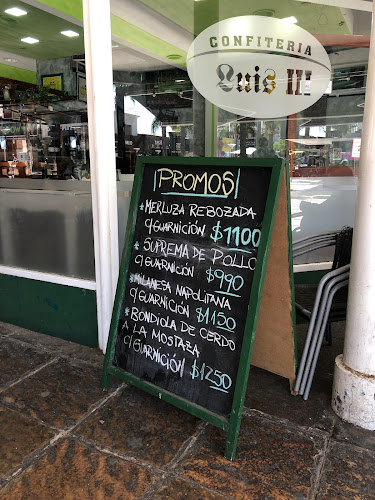 CONFITERIA
Luis III
¡PROMOS!
*MERLUZA REBOZADA
C/GUARNICIÓN $1100
* SUPREMA DE POLLO
C/GUARNICIÓN $990
*MILANESA NAPOLITANA
C/GUARNICIÓN $1120
*BONDIOLA DE CERDO
A LA MOSTAZA
C/GUARNICIÓN $1250